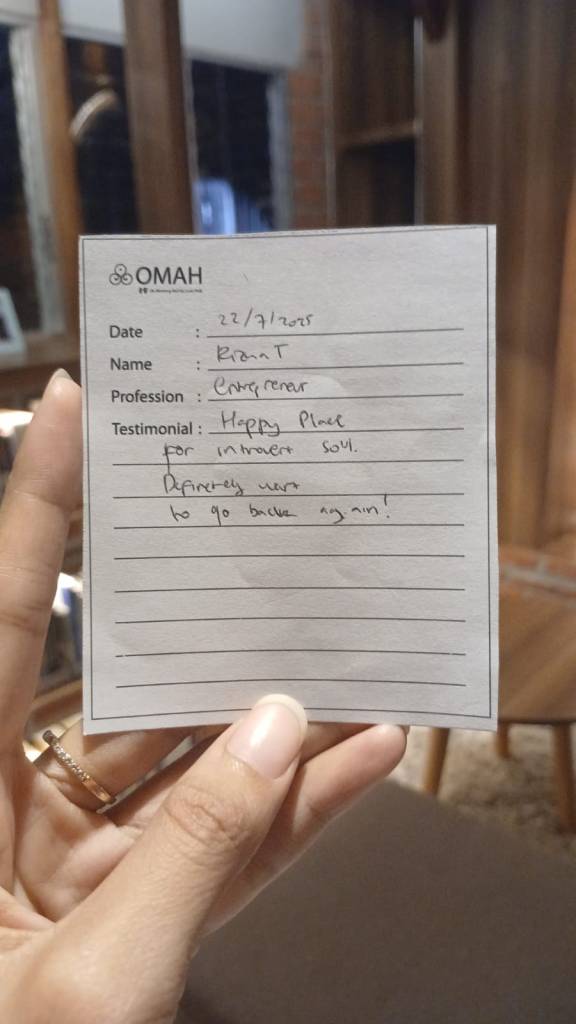 OMAH
Date : 22/7/2025
Name : Riana T
Profession : Entrepreneur
Testimonial : Happy Place
for introvert soul.
Definetely want
to go back again!